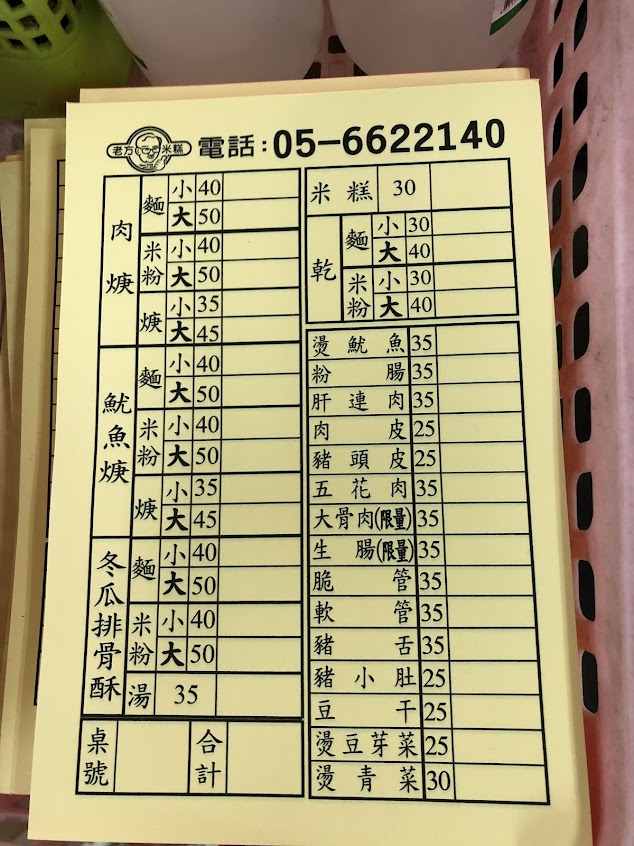 老方米糕 電話：05-6622140
肉焿
麵 小 40
大 50
米粉 小 40
大 50
焿 小 35
大 45
魷魚焿
麵 小 40
大 50
米粉 小 40
大 50
焿 小 35
大 45
冬瓜排骨酥
麵 小 40
大 50
米粉 小 40
大 50
湯 35
桌號 合計
米糕 30
乾
麵 小 30
大 40
米粉 小 30
大 40
燙魷魚 35
粉腸 35
肝連肉 35
肉皮 25
豬頭皮 25
五花肉 35
大骨肉(限量) 35
生腸(限量) 35
脆管 35
軟管 35
豬舌 35
豬小肚 25
豆干 25
燙豆芽菜 25
燙青菜 30